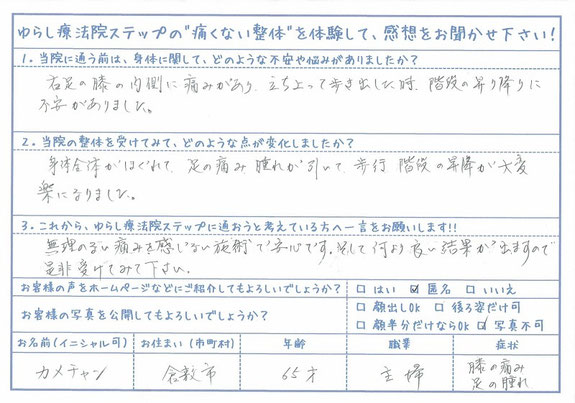 ゆらし療法院ステップの"痛くない整体"を体験して、感想をお聞かせ下さい!
1.当院に通う前は、身体に関して、どのような不安や悩みがありましたか?
右足の膝の内側に痛みがあり、立ち上って歩き出した時、階段の昇り降りに
不安がありました。
2.当院の整体を受けてみて、どのような点が変化しましたか?
身体全体がほぐれて、足の痛み 腫れが引いて、歩行 階段の昇降が大変
楽になりました。
3.これから、ゆらし療法院ステップに通おうと考えている方へ一言をお願いします!!
無理のない痛みを感じない施術で安心です。そして何より良い結果が出ますので
是非受けてみて下さい。
お客様の声をホームページなどにご紹介してもよろしいでしょうか? □はい ☑匿名 □いいえ
お客様の写真を公開してもよろしいでしょうか? □顔出しOK □後ろ姿だけ可
□顔半分だけならOK ☑写真不可
お名前(イニシャル可) お住まい(市町村) 年齢 職業 症状
カメチャン 倉敷市 65才 主婦 膝の痛み
足の腫れ